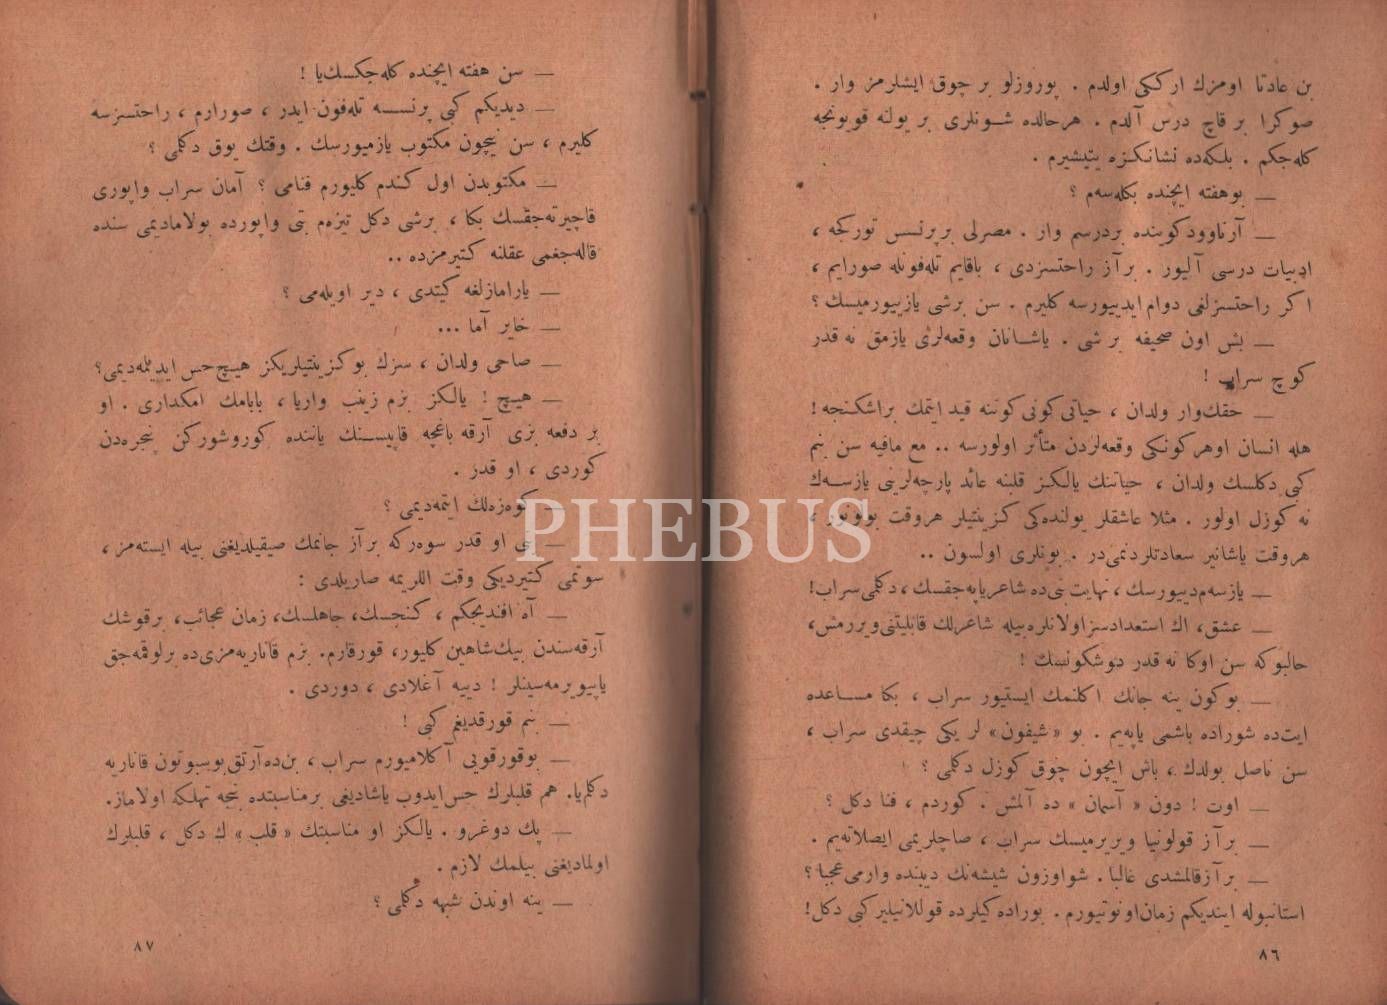 بن عادتا اومزك ارككی اولدم . پوروزلو بر چوق ایشلرمز وار .
صوكرا بر قاچ درس آلدم . هرحالده شونلری بر یولنه قویونجه
كله‌جكم . بلكه‌ده نشانكزه یتیشیرم .
— بوهفته ایچنده بكله‌سه‌م ؟
— آرناوودكوینده بردرسم وار . مصرلی برپرنسس توركجه ،
ادبیات درسی آلیور . بر آز راحتسزدی ، باقایم تله‌فونله صورایم ،
اكر راحتسزلغی دوام ایدییورسه كلیرم . سن برشی یازییورمیسك ؟
— بش اون صحیفه بر شی . یاشانان وقعه‌لری یازمق نه قدر
كوچ سراب !
— حقك‌وار ولدان ، حیاتی‌كونی‌كوننه قید ایتمك براشكنجه !
هله انسان اوهركونكی وقعه‌لردن متأثر اولورسه .. مع مافیه سن بنم
كبی دكلسك ولدان ، حیاتنك یالكز قلبنه عائد پارچه‌لرینی یازسه‌ك
نه كوزل اولور . مثلا عاشقلر یولنده‌كی كزینتیلر هروقت بولونور ،
هروقت یاشانیر سعادتلردنمی‌در . بونلری اولسون ..
— یازسه‌م‌دییورسك ، نهایت بنی‌ده شاعریاپه‌جقسك ، دكلمی‌سراب!
— عشق ، اك استعدادسزاولانلره‌بیله شاعرلك قابلیتنی‌ویررمش،
حالبوكه سن اوكا نه قدر دوشكونسك !
— بوكون ینه جانك اكلنمك ایستیور سراب ، بكا مساعده
ایت‌ده شوراده باشمی یاپه‌یم . بو «شیفون» لر یكی چیقدی سراب ،
سن ناصل بولدك ، باش ایچون چوق كوزل دكلمی ؟
— اوت ! دون « آسمان » ده آلمش . كوردم ، فنا دكل ؟
— بر آز قولونیا ویریرمیسك سراب ، صاچلریمی ایصلاته‌یم .
— بر آزقالمشدی غالبا . شواوزون شیشه‌نك دیبنده وارمی‌عجبا ؟
استانبوله ایندیكم زمان‌اونوتیورم . بوراده‌كیلرده قوللانیلیركبی دكل!
٨٦
— سن هفته ایچنده كله‌جكسك‌یا !
— دیدیكم كبی پرنسسه تله‌فون ایدر ، صورارم ، راحتسزسه
كلیرم ، سن نیچون مكتوب یازمیورسك . وقتك یوق دكلمی ؟
— مكتوبدن اول كندم كلیورم فنامی ؟ آمان سراب واپوری
قاچیرته‌جقسك بكا ، برشی دكل تیزه‌م بنی واپورده بولامادیمی سنده
قاله‌جغمی عقلنه كتیرمزده ..
— یارامازلغه كیتدی ، دیر اویله‌می ؟
— خایر آما ...
— صاحی ولدان ، سزك بوكزینتیلریكز هیچ حس ایدیلمه‌دیمی؟
— هیچ ! یالكز بزم زینب واریا ، بابامك امكداری . او
بر دفعه بزی آرقه باغچه قاپیسنك یاننده كوروشوركن پنجره‌دن
كوردی ، او قدر .
— كوه‌زه‌لك ایتمه‌دیمی ؟
— بنی او قدر سوه‌ركه بر آز جانمك صیقیلدیغنی بیله ایسته‌مز ،
سوتمی كتیردیكی وقت اللریمه صاریلدی :
— آه افندیجكم ، كنجسك، جاهلسك، زمان عجائب، برقوشك
آرقه‌سندن بیك‌شاهین كلیور، قورقارم. بزم قاناریه‌مزی‌ده برلوقمه‌جق
یاپیویرمه‌سینلر ! دییه آغلادی ، دوردی .
— بنم قورقدیغم كبی !
— بوقورقویی آكلامیورم سراب ، بن‌ده‌آرتق‌بوسبوتون قاناریه
دكلم‌یا. هم قلبلرك حس‌ایدوب یاشادیغی برمناسبتده نیجه تهلكه اولاماز.
— پك دوغرو . یالكز او مناسبتك « قلب » ك دكل ، قلبلرك
اولمادیغنی بیلمك لازم .
— ینه اوندن شبهه دكلمی ؟
٨٧
PHEBUS